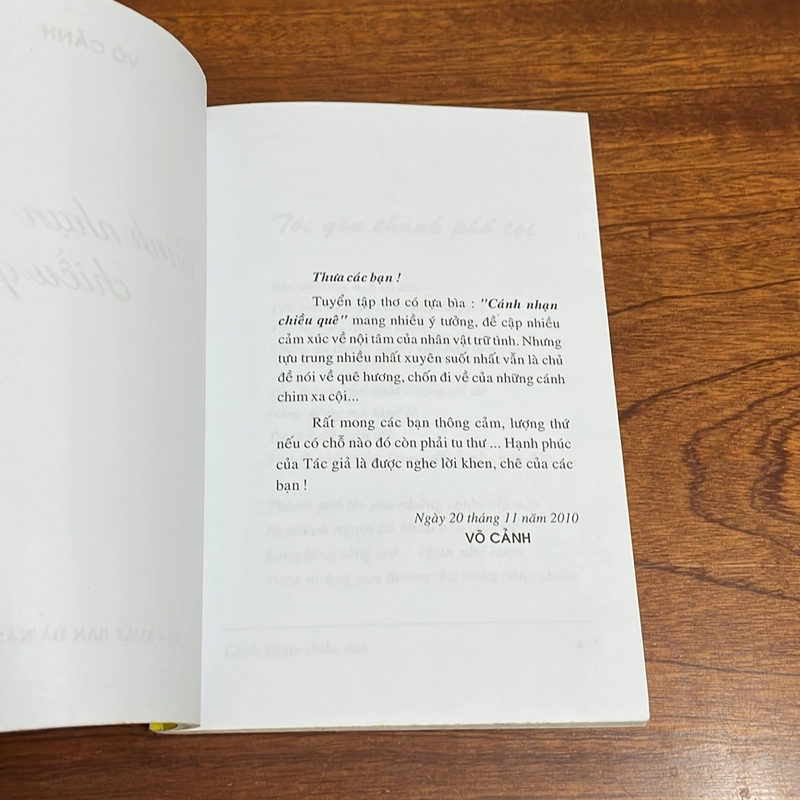 Thưa các bạn !
Tuyển tập thơ có tựa bìa : "Cánh nhạn
chiều quê" mang nhiều ý tưởng, đề cập nhiều
cảm xúc về nội tâm của nhân vật trữ tình. Nhưng
tựu trung nhiều nhất xuyên suốt nhất vẫn là chủ
đề nói về quê hương, chốn đi về của những cánh
chim xa cội...
Rất mong các bạn thông cảm, lượng thứ
nếu có chỗ nào đó còn phải tu thư ... Hạnh phúc
của Tác giả là được nghe lời khen, chê của các
bạn !
Ngày 20 tháng 11 năm 2010
VÕ CẢNH